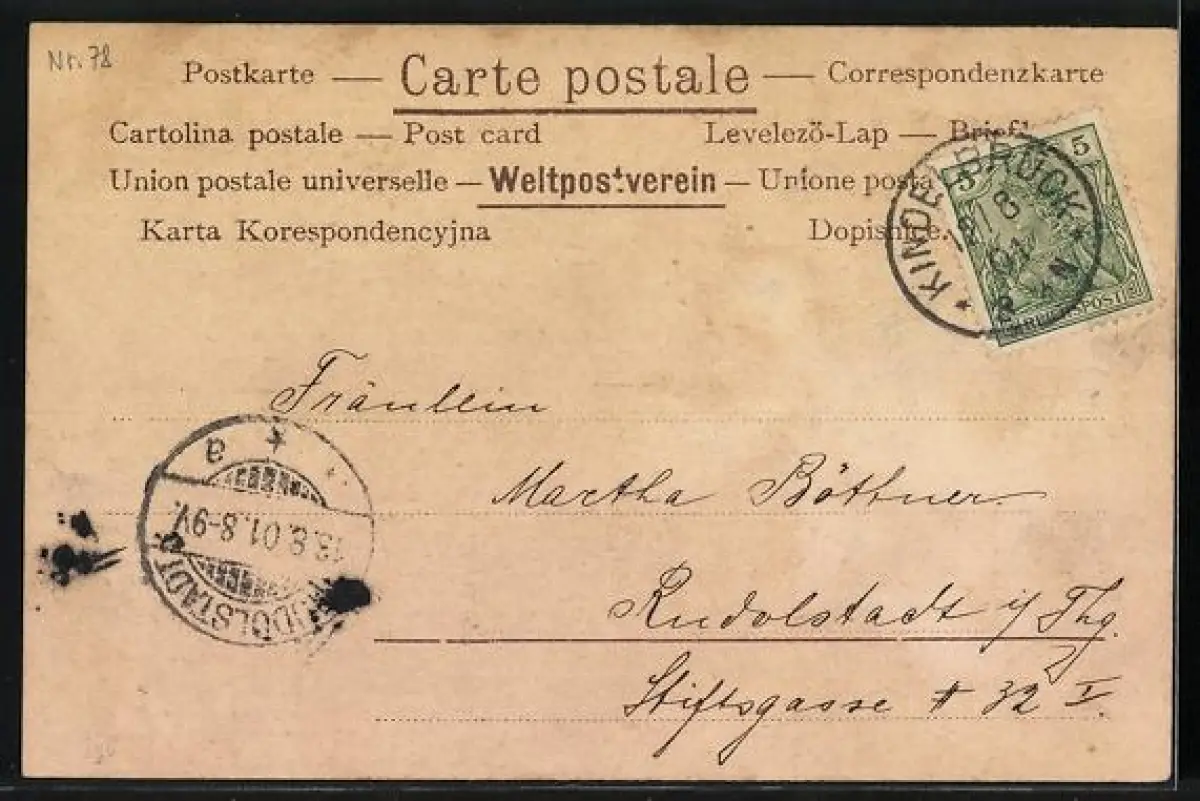 Nr. 78
Postkarte — Carte postale — Correspondenzkarte
Cartolina postale — Post card Levelező-Lap —
Union postale universelle — Weltpostverein — Unione posta
Karta Korespondencyjna Dopisnice.
5 5
REICHSPOST
* KINDELBRÜCK *
12 8 01
8-9 N
Fräulein
Martha Böttner
Rudolstadt i/Thg.
Stiftsgasse # 32 I.
* a
13.8.01.8-9V.
RUDOLSTADT